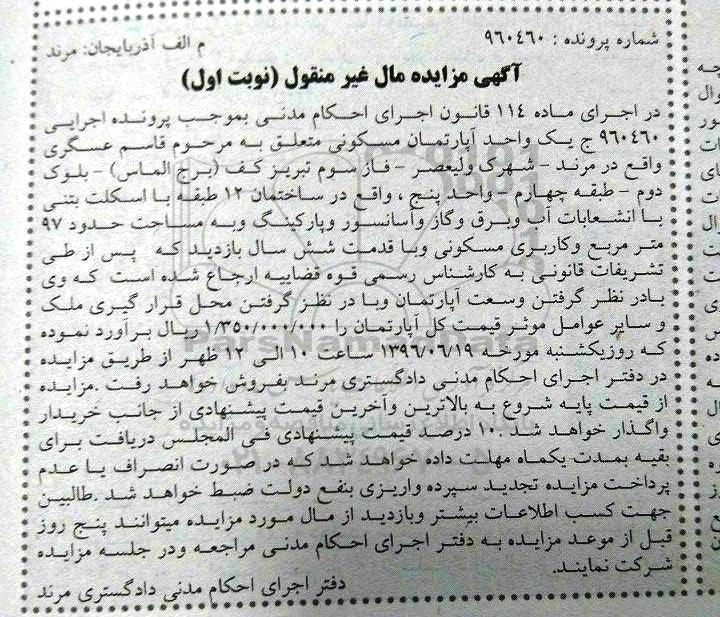 شماره پرونده : ۹۶۰۴۶۰
م الف آذربایجان: مرند
آگهی مزایده مال غیر منقول (نوبت اول)
در اجرای ماده ۱۱٤ قانون اجرای احکام مدنی بموجب پرونده اجرایی
۹۶۰۴۶۰ ج یک واحد آپارتمان مسکونی متعلق به مرحوم قاسم عسگری
واقع در مرند - شهرک ولیعصر - فاز سوم تبریز کف (برج الماس) - بلوک
دوم - طبقه چهارم - واحد پنج ، واقع در ساختمان ۱۲ طبقه با اسکلت بتنی
با انشعابات آب وبرق و گاز وآسانسور وپارکینگ وبه مساحت حدود ۹۷
متر مربع وکاربری مسکونی وبا قدمت شش سال بازدید که پس از طی
تشریفات قانونی به کارشناس رسمی قوه قضاییه ارجاع شده است که وی
بادر نظر گرفتن وسعت آپارتمان وبا در نظر گرفتن محل قرار گیری ملک
و سایر عوامل موثر قیمت کل آپارتمان را ۱/۳۵۰/۰۰۰/۰۰۰ ریال برآورد نموده
که روزیکشنبه مورخه ۱۳۹۶/۰۶/۱۹ ساعت ۱۰ الی ۱۲ ظهر از طریق مزایده
در دفتر اجرای احکام مدنی دادگستری مرند بفروش خواهد رفت .مزایده
از قیمت پایه شروع به بالاترین وآخرین قیمت پیشنهادی از جانب خریدار
واگذار خواهد شد .۱۰ درصد قیمت پیشنهادی فی المجلس دریافت برای
بقیه بمدت یکماه مهلت داده خواهد شد که در صورت انصراف یا عدم
پرداخت مزایده تجدید سپرده واریزی بنفع دولت ضبط خواهد شد .طالبین
جهت کسب اطلاعات بیشتر وبازدید از مال مورد مزایده میتوانند پنج روز
قبل از موعد مزایده به دفتر اجرای احکام مدنی مراجعه ودر جلسه مزایده
شرکت نمایند.
دفتر اجرای احکام مدنی دادگستری مرند
ParsNamadData